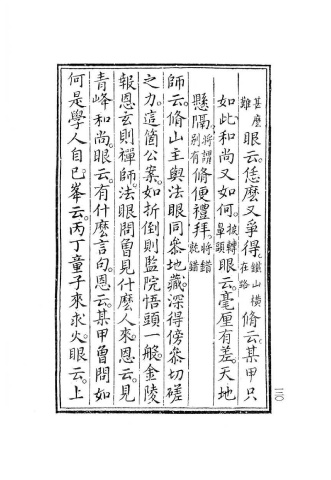 甚麼難眼云。恁麼又爭得。鐵山橫在路脩云。某甲只
如此和尚又如何。捩轉鼻頭眼云。毫厘有差。天地
懸隔。將謂別有脩便禮拜。將錯就錯
師云。脩山主與法眼同叅地藏。深得傍叅切磋
之力。這箇公案。如折倒則監院悟頭一般。金陵
報恩玄則禪師。法眼問曾見什麼人來。恩云。見
青峰和尚。眼云。有什麼言句。恩云。某甲曾問如
何是學人自巳。峯云。丙丁童子來求火。眼云。上